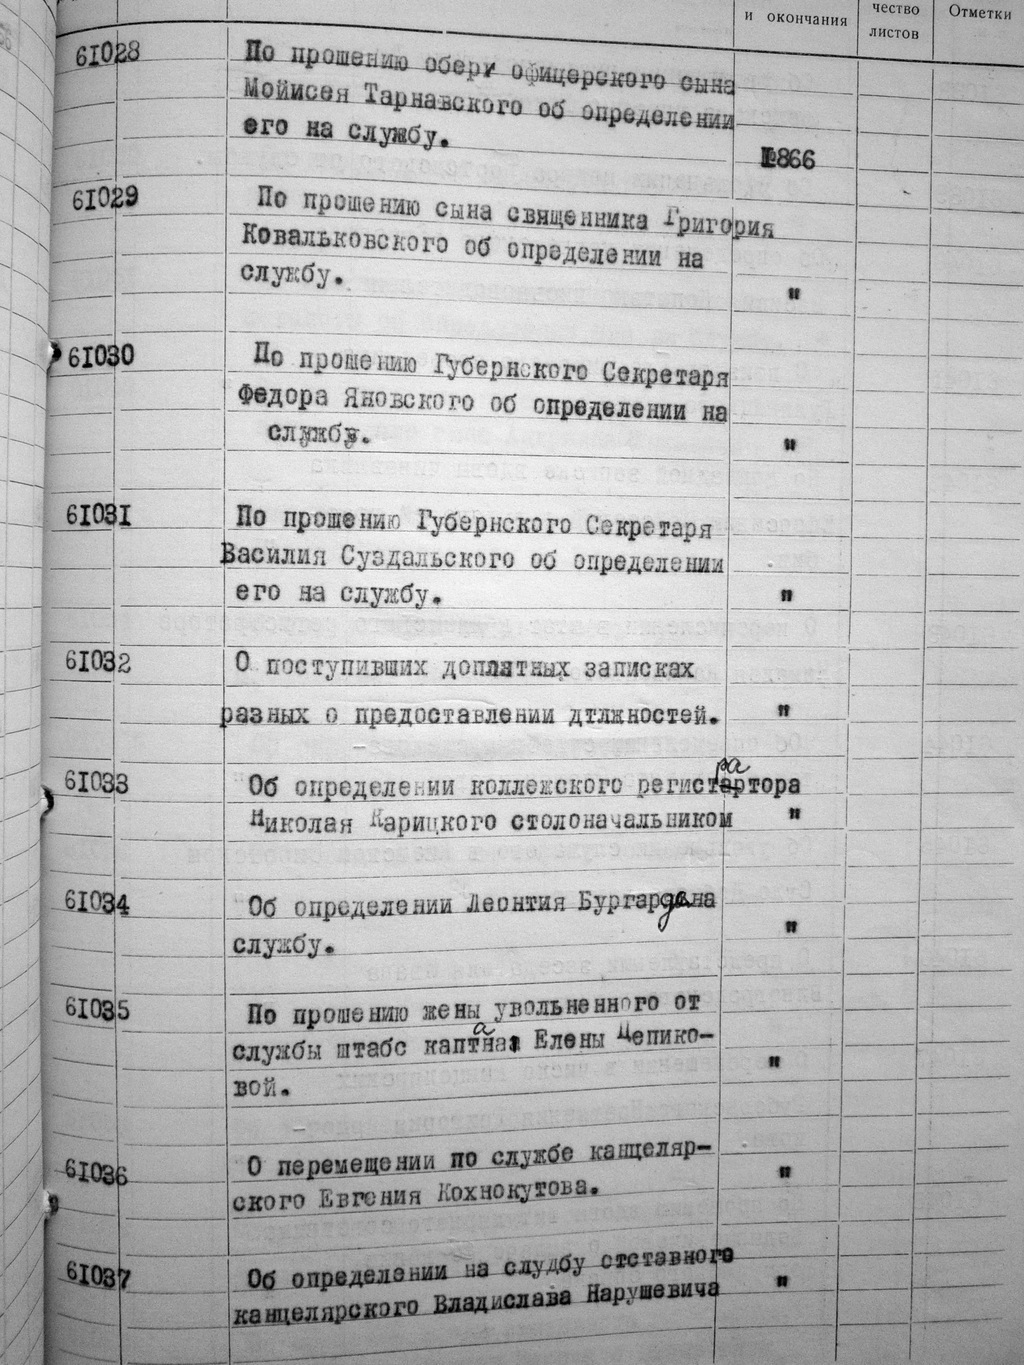 и окончания
чество
листов
Отметки
61028
По прошению обер офицерского сына
Мойисея Тарнавского об определении
его на службу.
1866
61029
По прошению сына священника Григория
Ковальковского об определении на
службу.
"
61030
По прошению Губернского Секретаря
Федора Яновского об определении на
службу.
"
61031
По прошению Губернского Секретаря
Василия Суздальского об определении
его на службу.
"
61032
О поступивших доплатных записках
разных о предоставлении дтлжностей.
"
61033
ра
Об определении коллежского регистартора
Николая Карицкого столоначальником
"
61034
Об определении Леонтия Бургарде на
службу.
"
61035
По прошению жены увольненного от
службы штабс каптана Елены Цепико-
вой.
"
61036
О перемещении по службе канцеляр-
ского Евгения Кохнокутова.
"
61037
Об определении на слудбу отставного
канцелярского Владислава Нарушевича
"